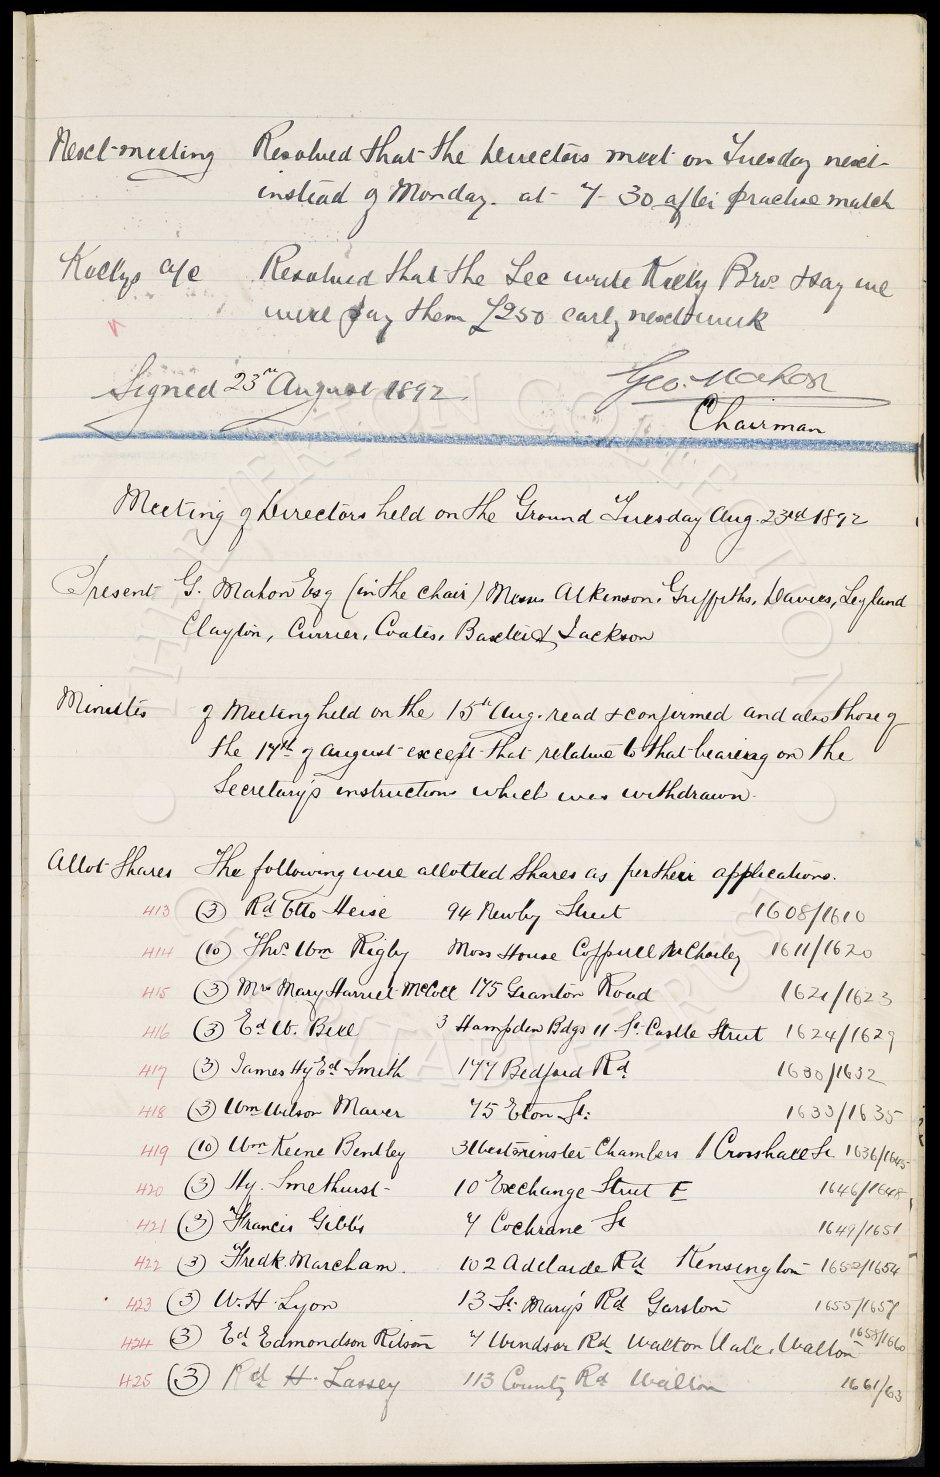 Next meeting Resolved that the Directors meet on Tuesday next
instead of Monday. at 7-30 after practise match
Kellys a/c Resolved that the Sec write Kelly Bros & say we
will pay them £250 early next week
Signed 23rd August 1892 Geo. Mahon
Chairman
Meeting of Directors held on the Ground Tuesday Aug. 23rd 1892
Present G. Mahon Esq (in the chair) Messrs Atkinson, Griffiths, Davies, Leyland
Clayton, Currier, Coates, Baxter & Jackson
Minutes of Meeting held on the 15th Aug. read & confirmed and also those of
the 17th of August except that relative to that bearing on the
Secretary's instructions which was withdrawn.
Allot Shares The following were allotted shares as per their applications.
413 (3) Rd Otto Heise 94 Newby Street 1608/1610
414 (10) Thos. Wm Rigby Moss House Coppull Nr Chorley 1611/1620
415 (3) Mrs Mary Harriet McColl 175 Granton Road 1621/1623
416 (3) Ed W. Bell 3 Hampden Bdgs 11 St. Castle Street 1624/1629
417 (3) James Hy Ed Smith 177 Bedford Rd 1630/1632
418 (3) Wm Wilson Maver 75 Eton St. 1633/1635
419 (10) Wm Keene Bentley 3 Westminster Chambers 1 Crosshall St 1636/1645
420 (3) Hy. Smethurst 10 Exchange Street E 1646/1648
421 (3) Francis Gibbs 7 Cochrane St 1649/1651
422 (3) Fredk. Marcham. 102 Adelaide Rd Kensington 1652/1654
423 (3) W. H. Lyon 13 St. Mary's Rd Garston 1655/1657
424 (3) Ed. Edmondson Ritson 7 Windsor Rd Walton Vale, Walton 1658/1660
425 (3) Rd H. Lassey 113 County Rd Walton 1661/63
THE EVERTON COLLECTION